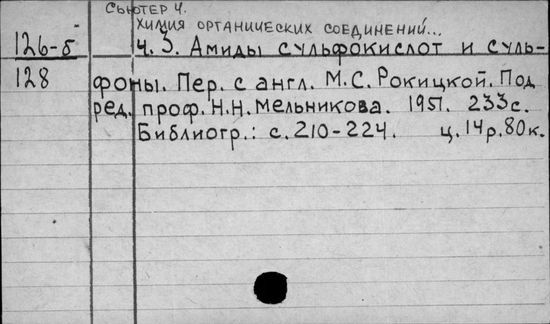 Сьютер Ч.
Химия органических соединений...
126-б Ч. 3. Амиды сульфокислот и суль-
128 фоны. Пер. с англ. М.С. Рокицкой. Под
ред. проф. Н.Н. Мельникова. 1951. 233 с.
Библиогр.: с. 210-224. ц. 14 р. 80 к.